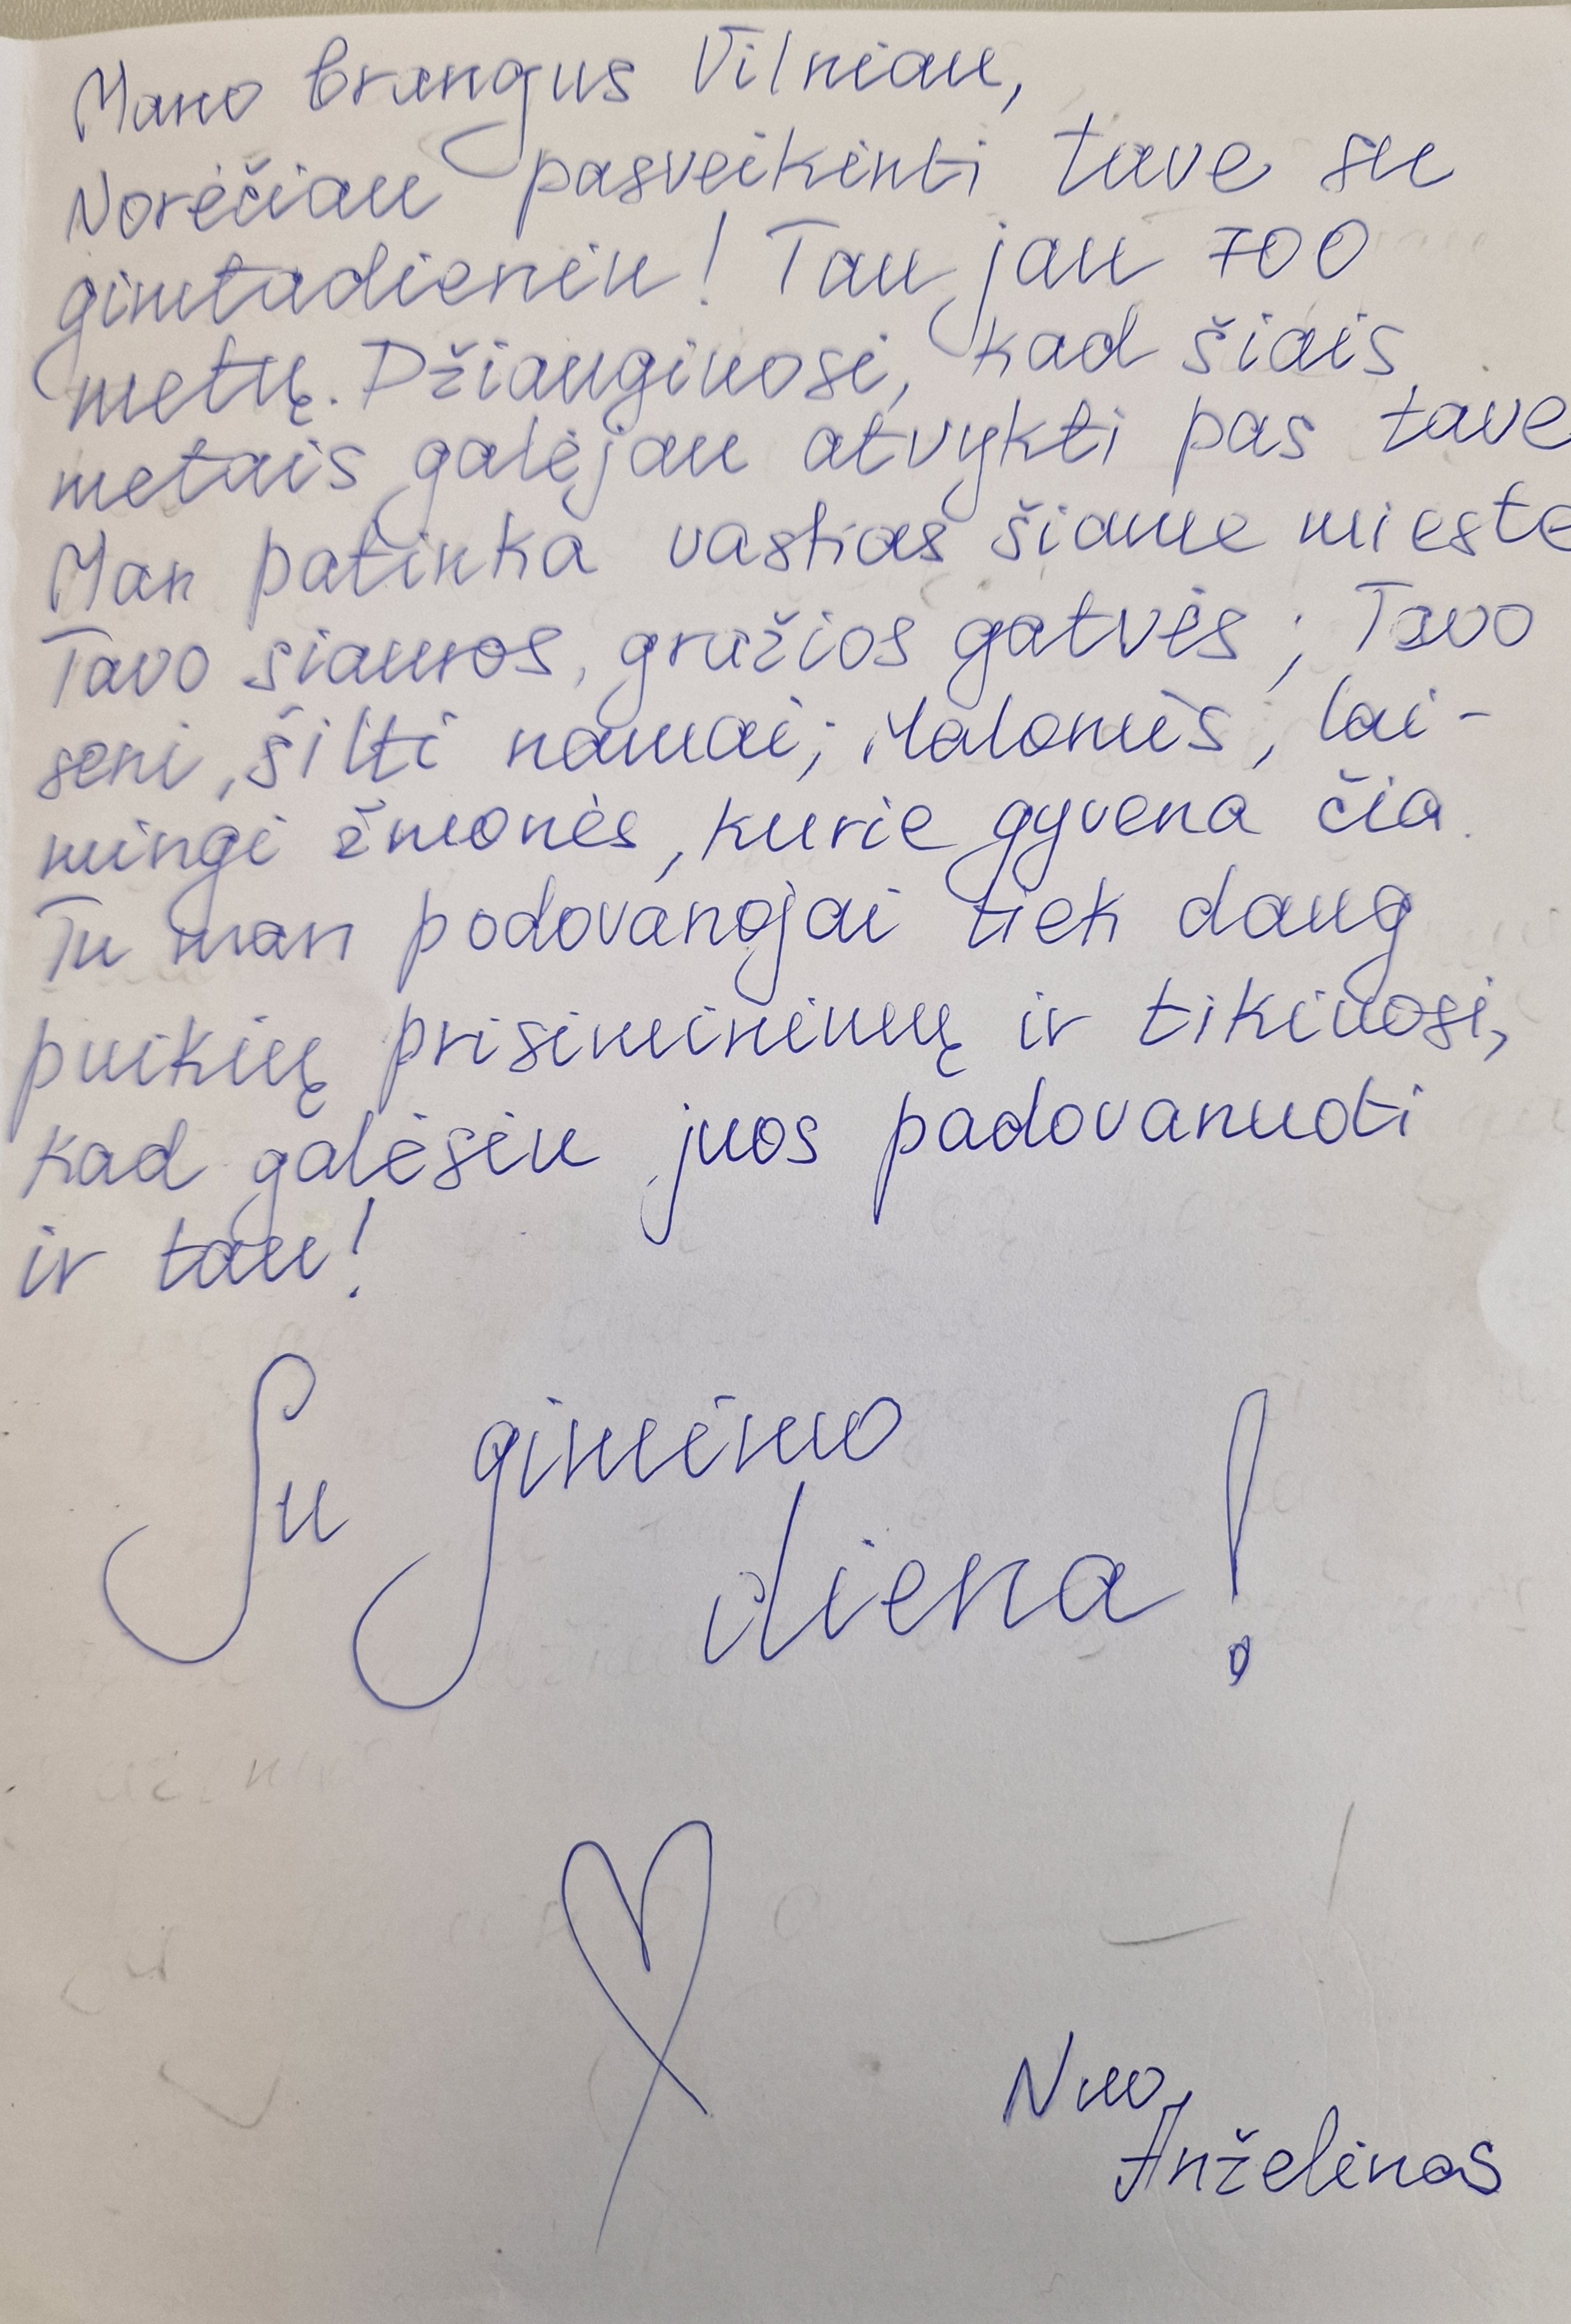 Mano brangus Vilniau,
Norėčiau pasveikinti tave su
gimtadieniu! Tau jau 700
metų. Džiauginosi, kad šiais
metais galėjau atvykti pas tave
Man patinka vaskas šiame mieste
Tavo siauros, gražios gatvės; Tavo
seni, šilti namai; Malonùs, lai-
mingi žmonės, kurie gyvena čia.
Tu man podovanojai tiek daug
puikių prisiminimų ir tikiuosi,
kad galėsiu juos padovanuoti
ir tau!
Su gimimo
diena!
Nuo
Anželinos